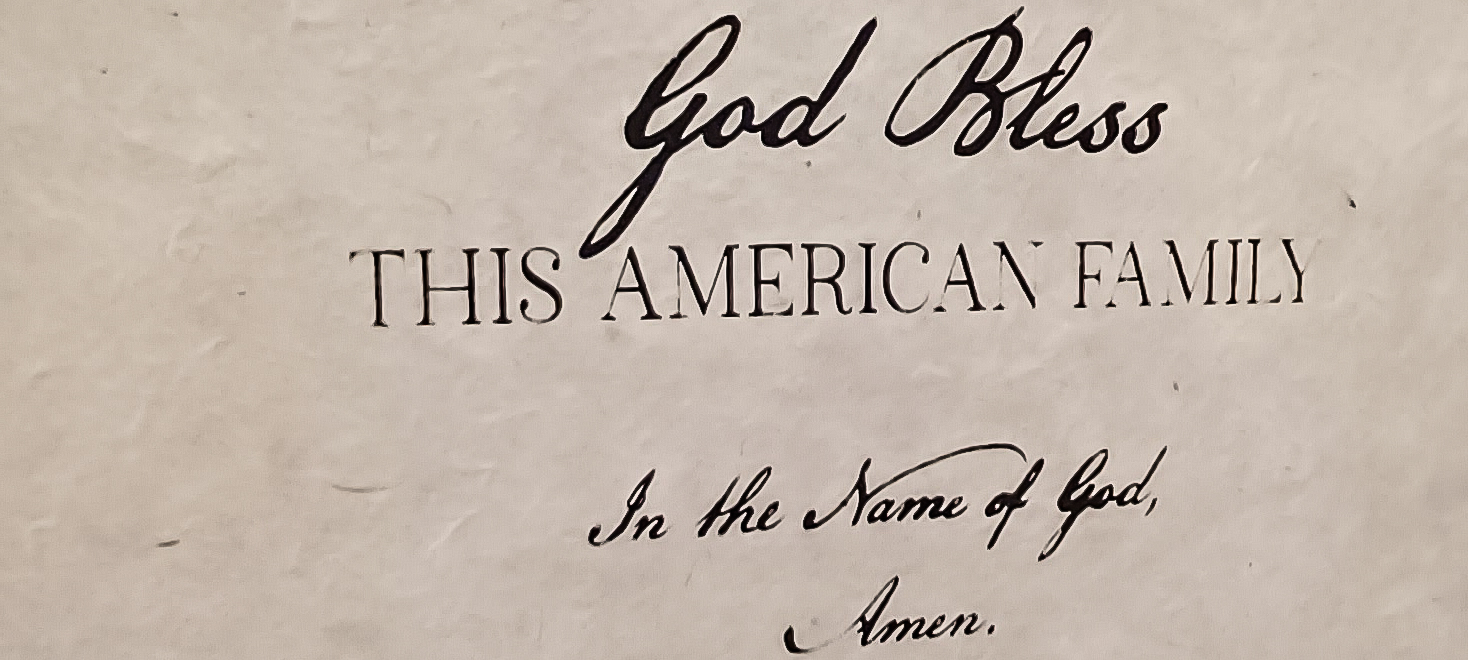 God Bless
THIS AMERICAN FAMILY
In the Name of God,
Amen.